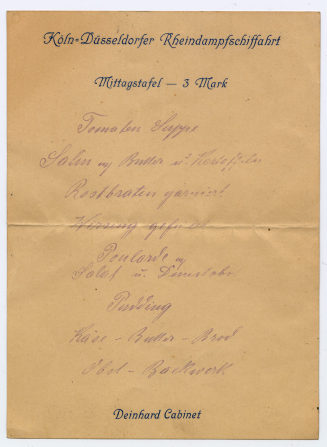 Köln-Düsseldorfer Rheindampfschiffahrt
Mittagstafel — 3 Mark
Tomaten Suppe
Salm m/ Butter u. Kartoffeln
Rostbraten garniert
Wirsing
Poularde m/
Salat u.
Pudding
Käse - Butter - Brod
Obst - Backwerk
Deinhard Cabinet